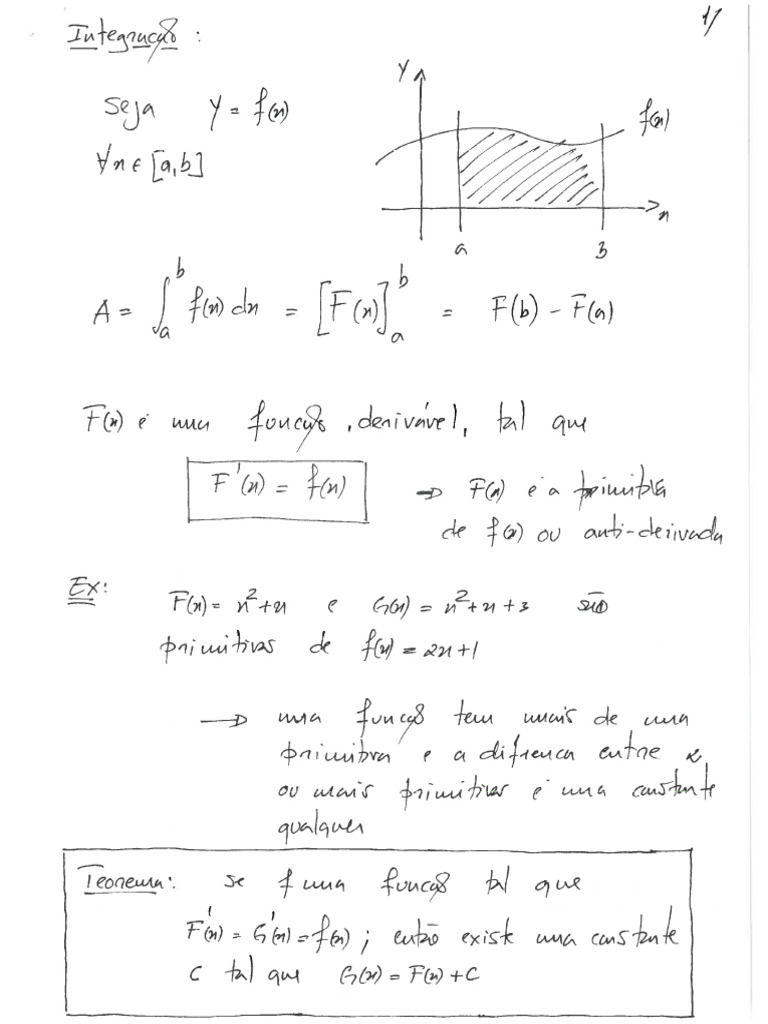 Integração :
1/
Seja y = f(x)
∀x ∈ [a,b]
y
f(x)
x
a
b
A = ∫_a^b f(x) dx = [F(x)]_a^b = F(b) - F(a)
F(x) é uma função, derivável, tal que
F'(x) = f(x) → F(x) é a primitiva
de f(x) ou anti-derivada
Ex: F(x) = x²+x e G(x) = x²+x+3 são
primitivas de f(x) = 2x+1
→ uma função tem mais de uma
primitiva e a difrenca entre 2
ou mais primitivas é uma constante
qualquer
Teorema: se f uma função tal que
F'(x) = G'(x) = f(x) ; então existe uma constante
C tal que G(x) = F(x) + C